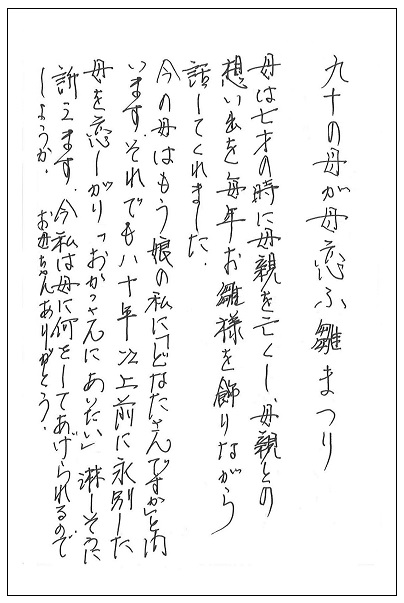 九十の母が母恋ふ雛まつり
母は七才の時に母親を亡くし、母親との
想い出を毎年お雛様を飾りながら
話してくれました.
今の母はもう娘の私に「どなたさんですか」と問
います.それでも八十年以上前に永別した
母を恋しがり「おかっさんにあいたい」淋しそうに
訴えます.今私は母に何をしてあげられるので
しょうか. お母ちゃんありがとう.